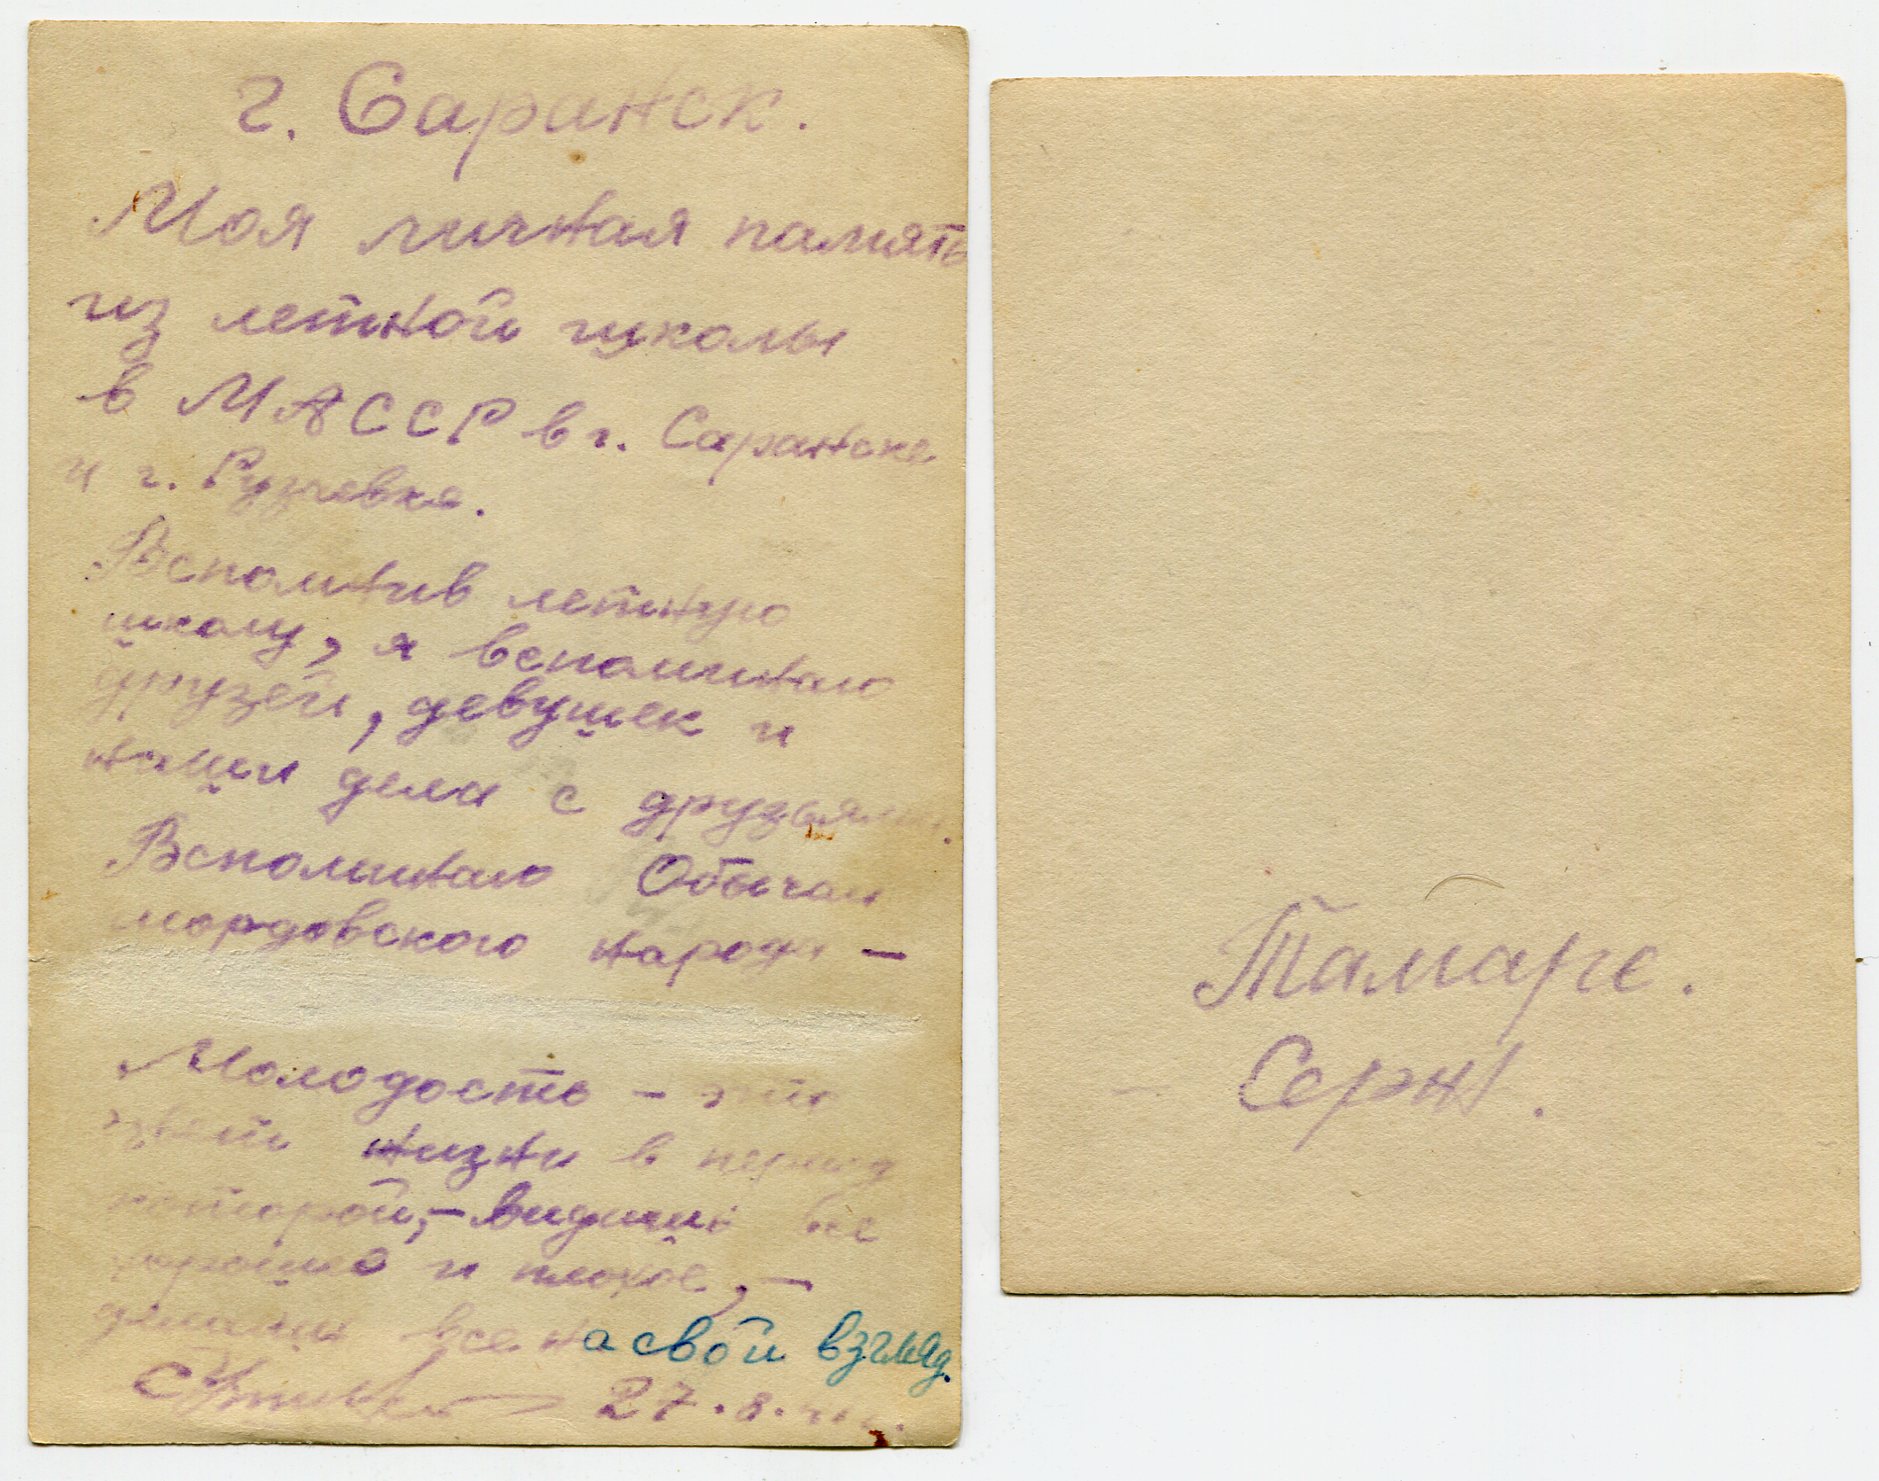 г. Саранск.
Моя личная память
из летной школы
в МАССР в г. Саранске
и г. Рузаевке.
Вспомнив летную
школу, я вспоминаю
друзей, девушек и
наши дела с друзьями.
Вспоминаю Обычаи
мордовского народа –
Молодость – это
цвет жизни в период
которой, – видишь все
хорошее и плохое, –
делаешь все на свой взгляд.
27. 8.
Тамаре.
Серж.